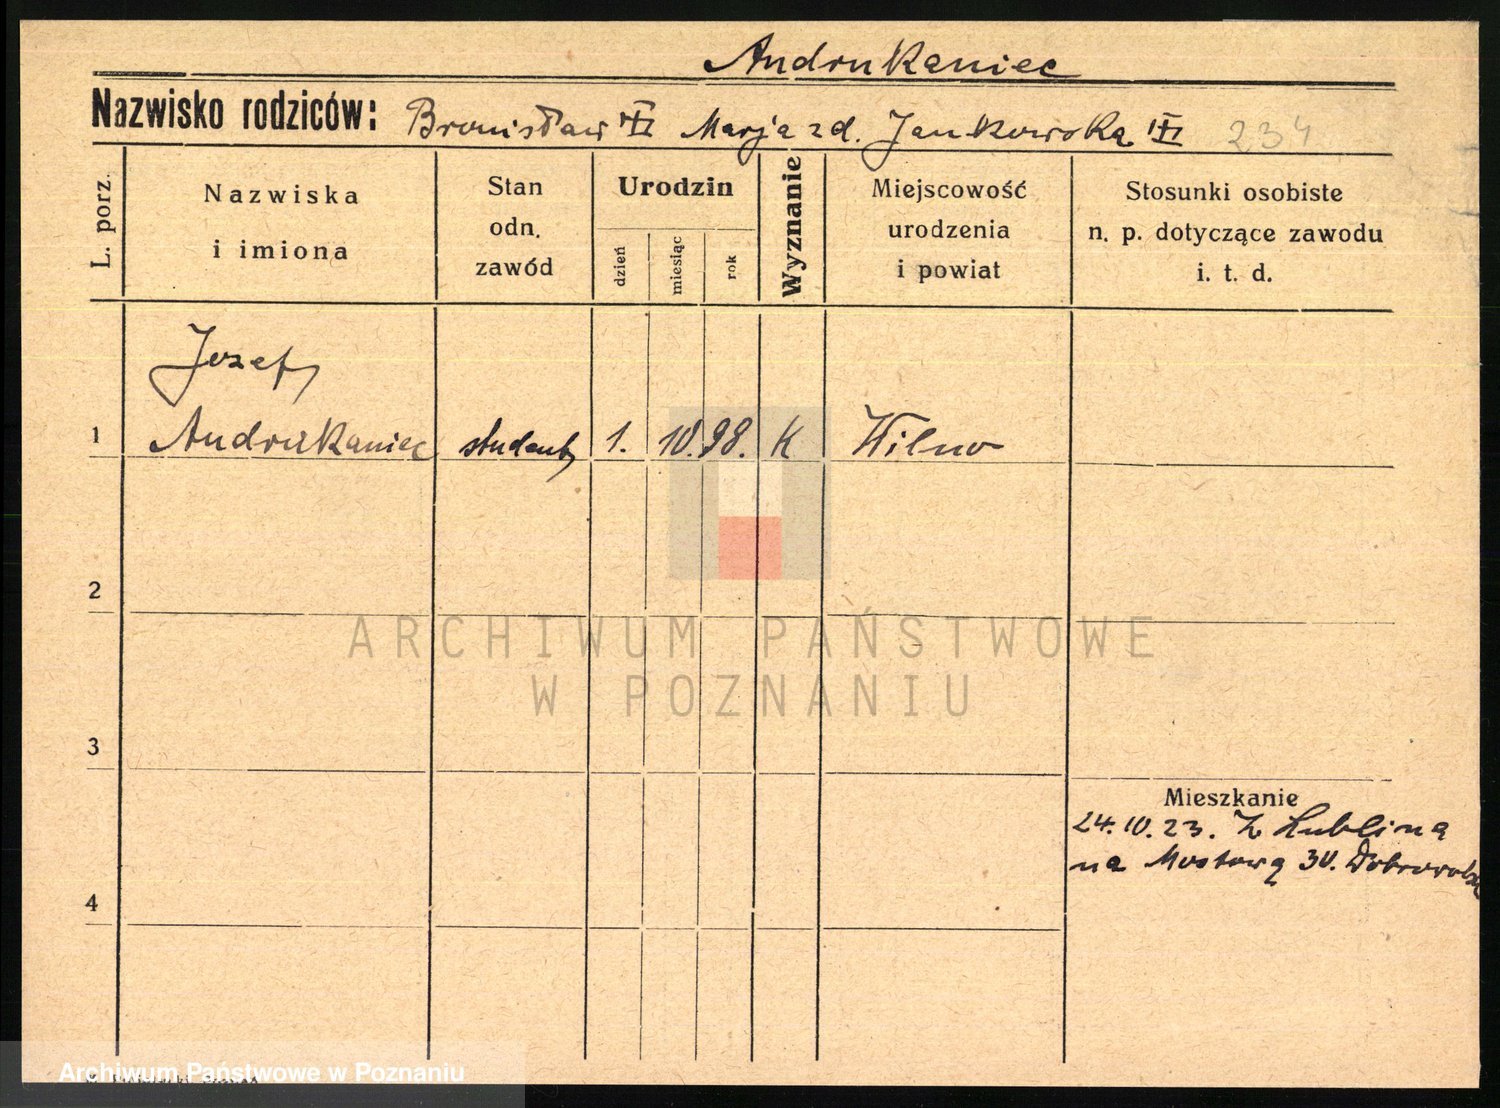 Andrukaniec
Nazwisko rodziców: Bronisław Marja zd. Jankowska 234
L. porz.
Nazwiska
i imiona
Stan
odn.
zawód
Urodzin
dzień
miesiąc
rok
Wyznanie
Miejscowość
urodzenia
i powiat
Stosunki osobiste
n. p. dotyczące zawodu
i. t. d.
Jozef
1 Andrukaniec student 1. 10. 98. K Wilno
2
ARCHIWUM PAŃSTWOWE
W POZNANIU
3
Mieszkanie
24. 10. 23. Z Lublina
na Mostową 30.
4
Archiwum Państwowe w Poznaniu